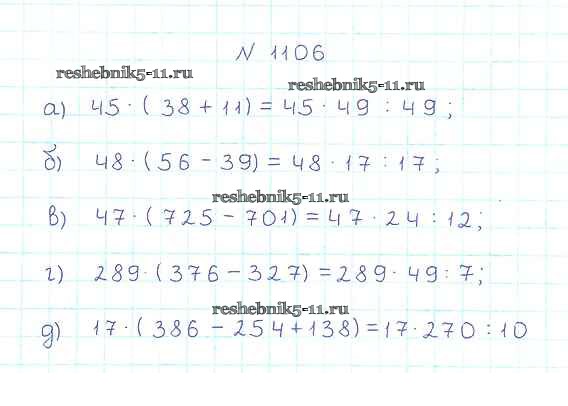 N 1106
reshebnik5-11.ru
reshebnik5-11.ru
а) 45 · ( 38 + 11) = 45 · 49 : 49 ;
б) 48 · (56 - 39) = 48 · 17 : 17 ;
reshebnik5-11.ru
в) 47 · (725 - 701) = 47 · 24 : 12;
г) 289 · (376 - 327) = 289 · 49 : 7;
reshebnik5-11.ru
д) 17 · (386 - 254 + 138) = 17 · 270 : 10